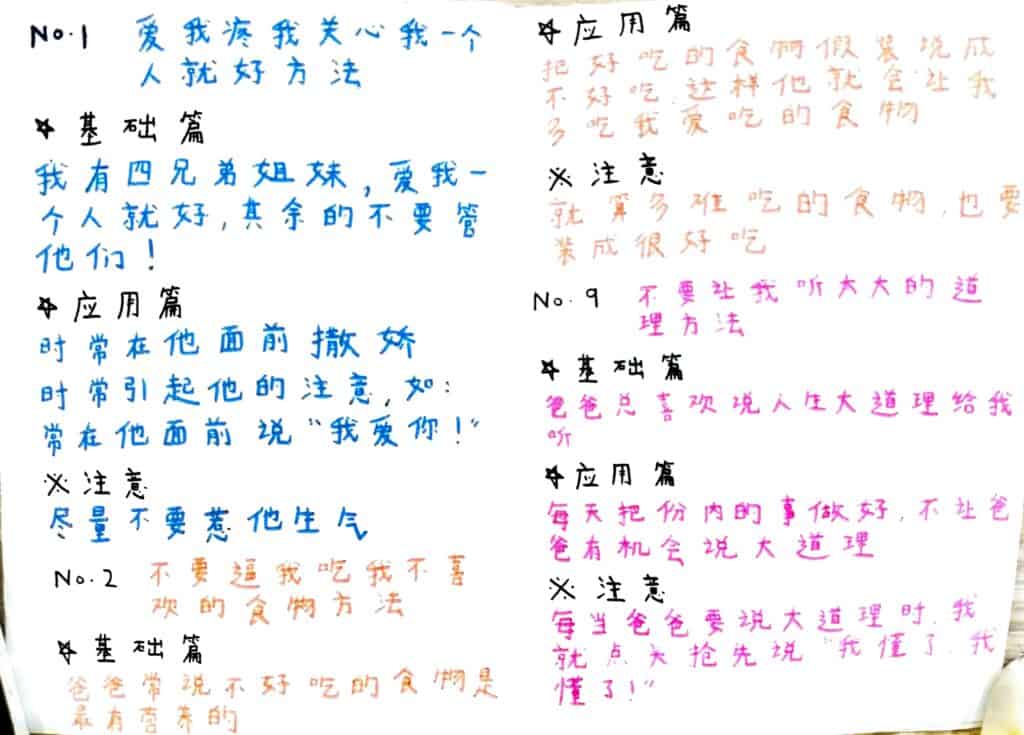 No.1 爱我疼我关心我一个
人就好方法
☆基础篇
我有四兄弟姐妹,爱我一
个人就好,其余的不要管
他们!
☆应用篇
时常在他面前撒娇
时常引起他的注意,如:
常在他面前说“我爱你!”
※注意
尽量不要惹他生气
No.2 不要逼我吃我不喜
欢的食物方法
☆基础篇
爸爸常说不好吃的食物是
最有营养的
☆应用篇
把好吃的食物假装说成
不好吃,这样他就会让我
多吃我爱吃的食物
※注意
就算多难吃的食物,也要
装成很好吃
No.9 不要让我听大大的道
理方法
☆基础篇
爸爸总喜欢说人生大道理给我
听
☆应用篇
每天把份内的事做好,不让爸
爸有机会说大道理
※注意
每当爸爸要说大道理时,我
就点头抢先说“我懂了,我
懂了!”